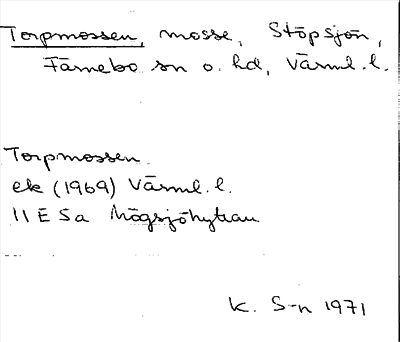 Torpmossen, mosse, Stöpsjön,
Färnebo sn o. hd, Värml. l.
Torpmossen
ek (1969) Värml. l.
11 E 5a Högsjöhyttan
K. S-n 1971